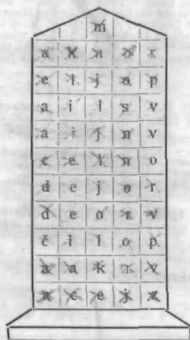 m
a k a o r
e l j a p
a i l s v
a i j n v
c e l n o
d e j o r
d e o r v
č i l o p
a a k r v
a c e j z